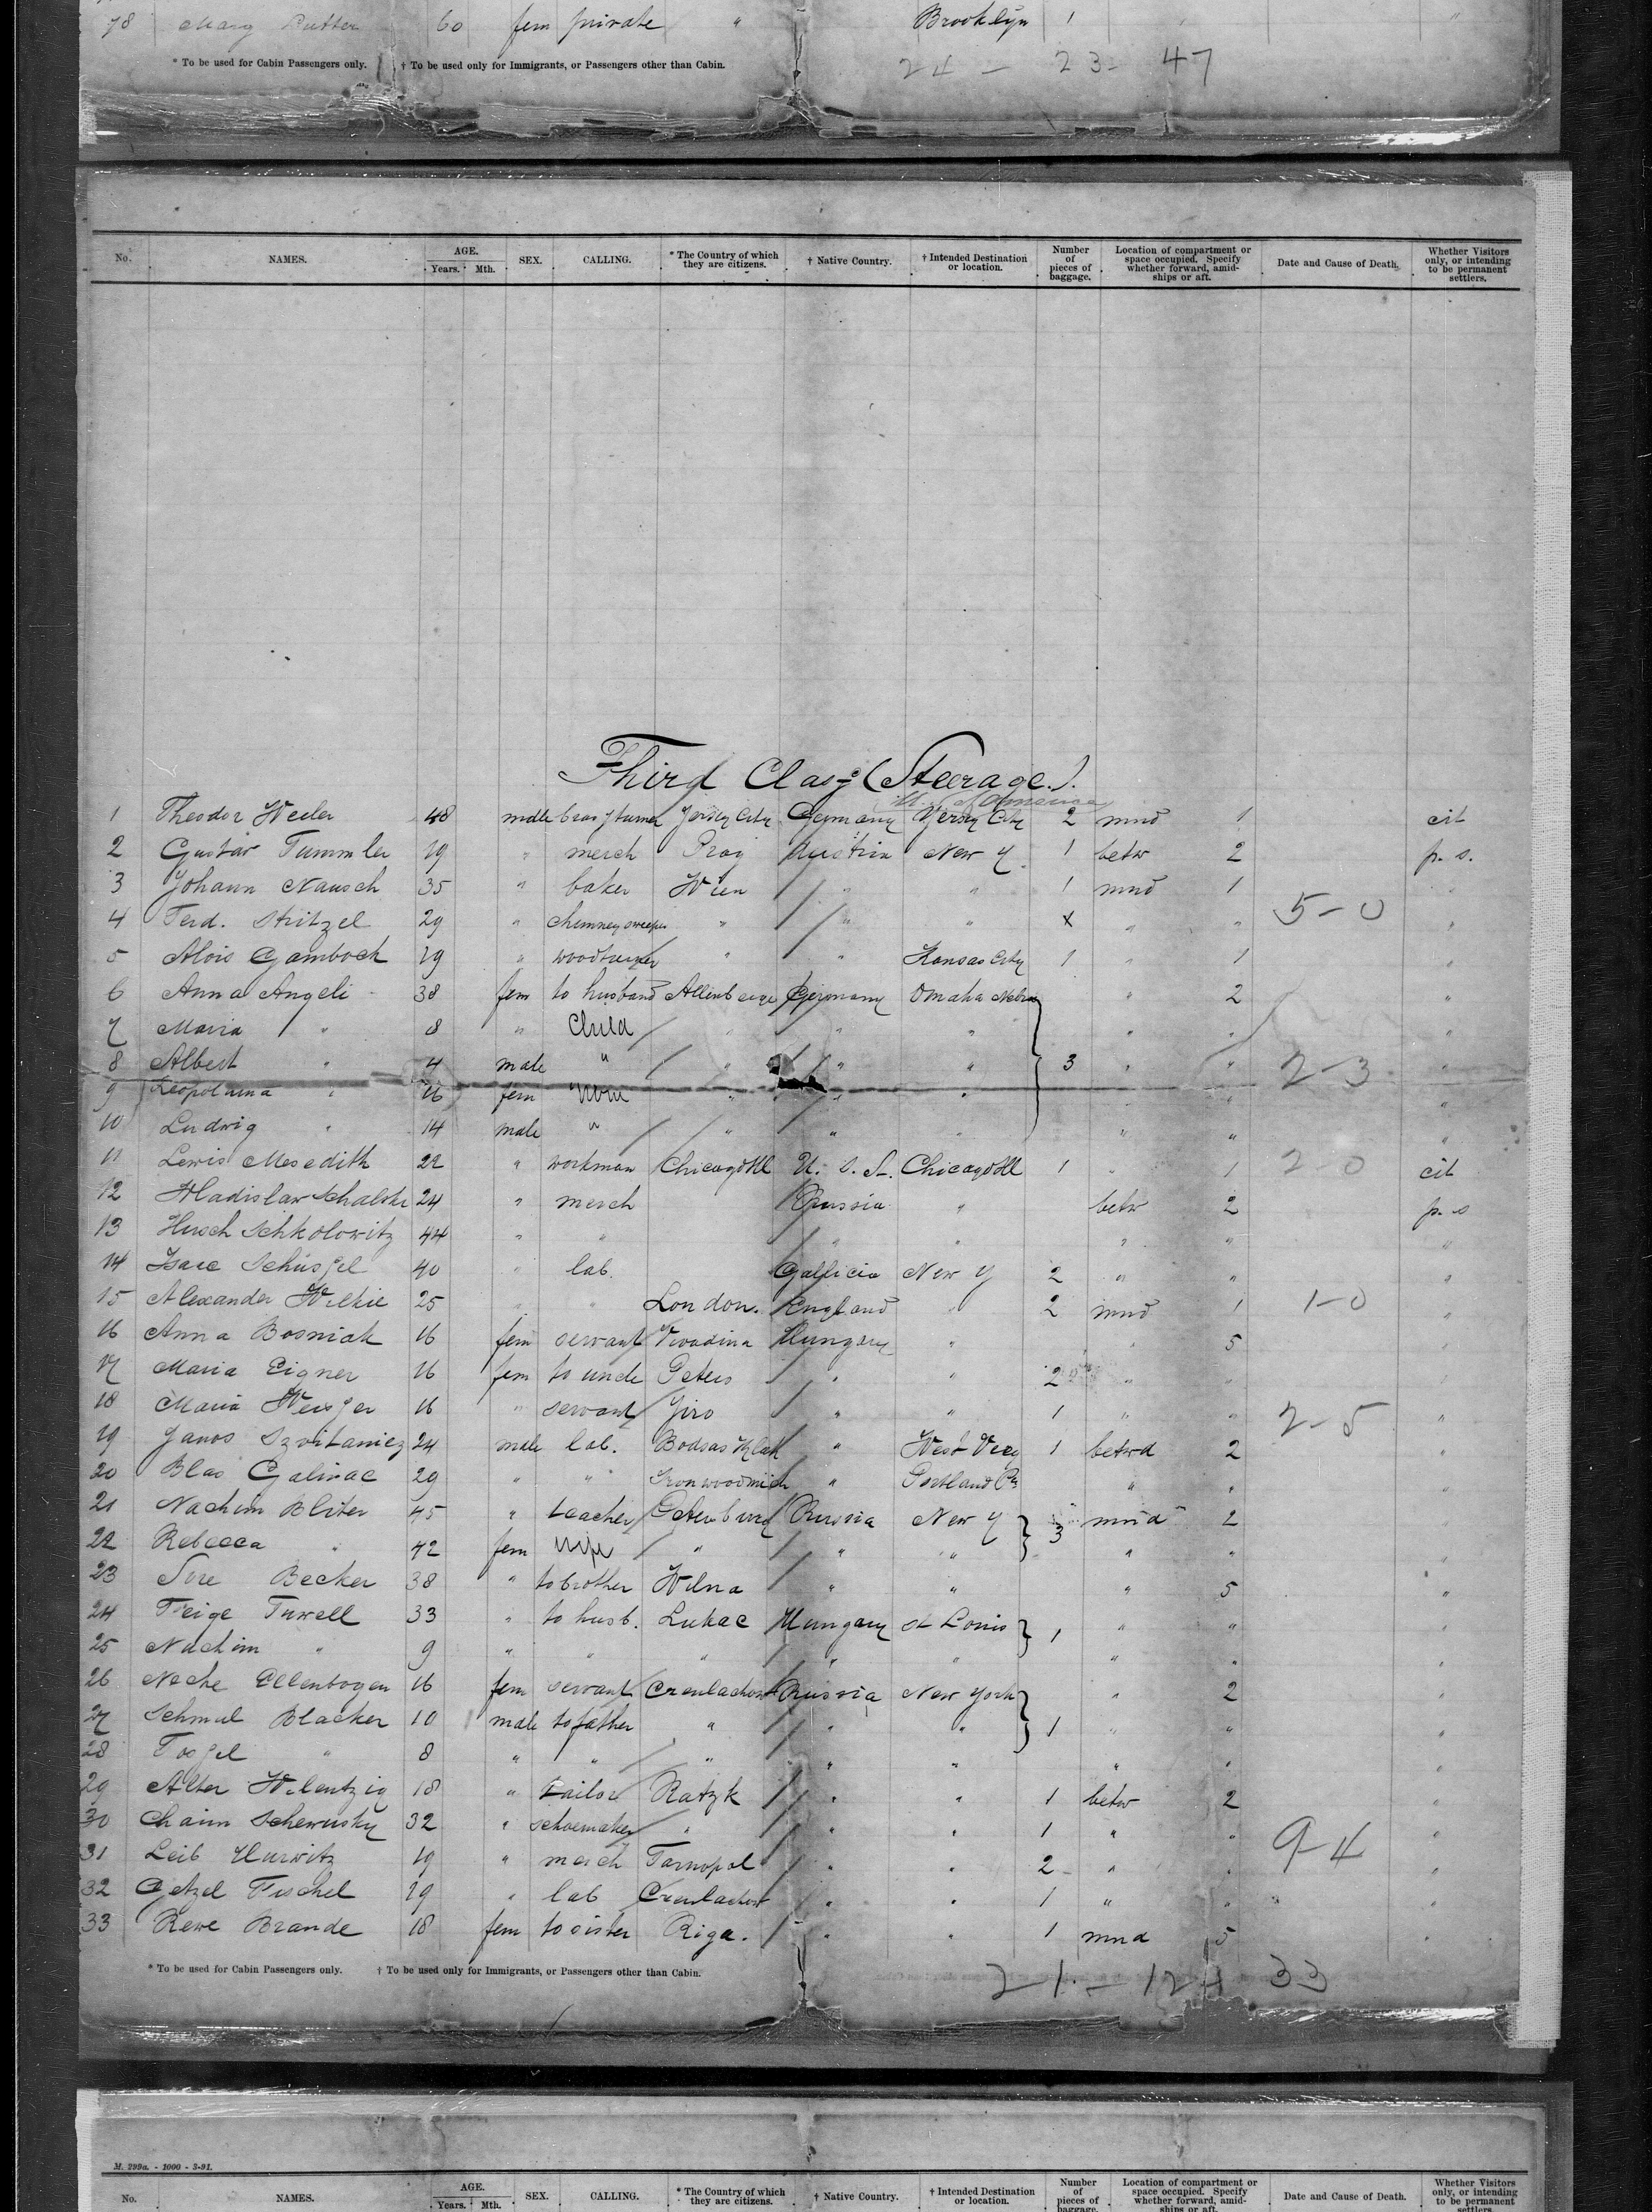 78 Mary Rutter 60 fem private " Brooklyn 1 "
* To be used for Cabin Passengers only. † To be used only for Immigrants, or Passengers other than Cabin.
24 – 23 – 47
No. NAMES. AGE. Years. Mth. SEX. CALLING. * The Country of which they are citizens. † Native Country. † Intended Destination or location. Number of pieces of baggage. Location of compartment or space occupied. Specify whether forward, amidships or aft. Date and Cause of Death. Whether Visitors only, or intending to be permanent settlers.
Third Class (Steerage.)
1 Theodor Weeler 48 male Jersey City Germany Jersey City 2 mnd 1 cit
2 Gustav Tummler 19 " merch Prag Austria New Y. 1 betw 2 p. s.
3 Johann Nausch 35 " baker Wien " " 1 mnd 1 "
4 Ferd. Stritzel 29 " chimney sweeper " " " x " " 5–0 "
5 Alois Gamboch 19 " woodturner " " Kansas City 1 " 1 "
6 Anna Angeli 38 fem to husband Germany Omaha Nebra " 2 "
7 Maria " 8 " Child " " " " " "
8 Albert " 4 male " " " " 3 " " 2–3 "
9 Leopoldina " 16 fem " " " " " "
10 Ludwig " 14 male " " " " " " "
11 Lewis Meredith 22 " workman Chicago Ill U. S. A. Chicago Ill 1 " 1 2–0 cit
12 Wladislaw Schalske 24 " merch Russia " betw 2 p. s
13 Hirsch Schkolowitz 44 " " " " " " "
14 Isaac Schüssel 40 " lab. Gallicia New Y 2 " " "
15 Alexander Wilkie 25 " " London. England " 2 mnd 1 1–0 "
16 Anna Bosniak 16 fem servant Hungary " " 5 "
17 Maria Eigner 16 fem to uncle Peters " " 2 " " "
18 Maria Weisser 16 " servant Jiro " " 1 " " 2–5 "
19 Janos Szvitanicz 24 male lab. " West Virg 1 betwd 2 "
20 Blas Galinac 29 " " Ironwood Mich " Portland Pa " " "
21 Nachim Bliter 45 " teacher Petersburg Russia New Y 3 mnd 2 "
22 Rebecca " 42 fem wife " " " " " "
23 Sore Becker 38 " to brother Wilna " " " 5 "
24 Feige Tuwell 33 " to husb. Lukac Hungary St Louis 1 " " "
25 Nachim " 9 " " " " " " " "
26 Neche Ellenbogen 16 fem servant Russia New York " 2 "
27 Schmul Blacker 10 male to father " " " 1 " " "
28 Tossel " 8 " " " " " " " "
29 Alter Wilentzig 18 " tailor Ratzk " " 1 betw 2 "
30 Chaim Schewusky 32 " schoemaker " " " 1 " " 9–4 "
31 Leib Hurwitz 19 " merch Tarnopol " " 2 " " "
32 Getzel Fischel 19 " lab " " 1 " " "
33 Rewe Brande 18 fem to sister Riga. " " 1 mnd 5 "
* To be used for Cabin Passengers only. † To be used only for Immigrants, or Passengers other than Cabin.
21 – 12 33
M. 299a. - 1000 - 3-91.
No. NAMES. AGE. Years. Mth. SEX. CALLING. * The Country of which they are citizens. † Native Country. † Intended Destination or location. Number of pieces of baggage. Location of compartment or space occupied. Specify whether forward, amidships or aft. Date and Cause of Death. Whether Visitors only, or intending to be permanent settlers.